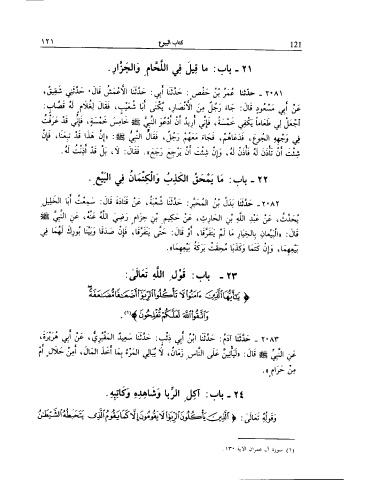 ١٢١ كتاب البيوع 121
٢١ - باب: ما قِيلَ فِي اللَّحَّامِ وَالجَزَّارِ.
٢٠٨١ - حدّثنا عُمَرُ بْنُ حَفْصٍ: حَدَّثَنَا أَبِي: حَدَّثَنَا الأَعْمَشُ قَالَ: حَدَّثَنِي شَقِيقٌ،
عَنْ أَبِي مَسْعُودٍ قَالَ: جَاءَ رَجُلٌ مِنَ الأَنْصَارِ، يُكْنَى أَبَا شُعَيْبٍ، فَقَالَ لِغُلَامٍ لَهُ قَصَّابٍ:
اجْعَلْ لِي طَعَاماً يَكْفِي خَمْسَةً، فَإِنِّي أُرِيدُ أَنْ أَدْعُوَ النَّبِيَّ ﷺ خَامِسَ خَمْسَةٍ، فَإِنِّي قَدْ عَرَفْتُ
فِي وَجْهِهِ الجُوعَ، فَدَعَاهُمْ، فَجَاءَ مَعَهُمْ رَجُلٌ، فَقَالَ النَّبِيُّ ﷺ: «إِنَّ هَذَا قَدْ تَبِعَنَا، فَإِنْ
شِئْتَ أَنْ تَأْذَنَ لَهُ فَأْذَنْ لَهُ، وَإِنْ شِئْتَ أَنْ يَرْجِعَ رَجَعَ». فَقَالَ: لَا، بَلْ قَدْ أَذِنْتُ لَهُ.
٢٢ - باب: مَا يَمْحَقُ الكَذِبُ وَالكِتْمَانُ فِي البَيْعِ.
٢٠٨٢ - حدّثنا بَدَلُ بْنُ المُحَبَّرِ: حَدَّثَنَا شُعْبَةُ، عَنْ قَتَادَةَ قَالَ: سَمِعْتُ أَبَا الخَلِيلِ
يُحَدِّثُ، عَنْ عَبْدِ اللَّهِ بْنِ الحَارِثِ، عَنْ حَكِيمِ بْنِ حِزَامٍ رَضِيَ اللَّهُ عَنْهُ، عَنِ النَّبِيِّ ﷺ
قَالَ: «البَيِّعَانِ بِالخِيَارِ مَا لَمْ يَتَفَرَّقَا، أَوْ قَالَ: حَتَّى يَتَفَرَّقَا، فَإِنْ صَدَقَا وَبَيَّنَا بُورِكَ لَهُمَا فِي
بَيْعِهِمَا، وَإِنْ كَتَمَا وَكَذَبَا مُحِقَتْ بَرَكَةُ بَيْعِهِمَا».
٢٣ - باب: قَوْلِ اللَّهِ تَعَالَى:
﴿يَٰٓأَيُّهَا ٱلَّذِينَ ءَامَنُوا۟ لَا تَأْكُلُوا۟ ٱلرِّبَوٰٓا۟ أَضْعَٰفًا مُّضَٰعَفَةً
وَٱتَّقُوا۟ ٱللَّهَ لَعَلَّكُمْ تُفْلِحُونَ﴾(١).
٢٠٨٣ - حدّثنا آدَمُ: حَدَّثَنَا ابْنُ أَبِي ذِئْبٍ: حَدَّثَنَا سَعِيدٌ المَقْبُرِيُّ، عَنْ أَبِي هُرَيْرَةَ،
عَنِ النَّبِيِّ ﷺ قَالَ: «لَيَأْتِيَنَّ عَلَى النَّاسِ زَمَانٌ، لَا يُبَالِي المَرْءُ بِمَا أَخَذَ المَالَ، أَمِنْ حَلَالٍ أَمْ
مِنْ حَرَامٍ».
٢٤ - باب: آكِلِ الرِّبا وَشَاهِدِهِ وَكَاتِبِهِ.
وَقَوْلِهِ تَعَالَى: ﴿ٱلَّذِينَ يَأْكُلُونَ ٱلرِّبَوٰا۟ لَا يَقُومُونَ إِلَّا كَمَا يَقُومُ ٱلَّذِى يَتَخَبَّطُهُ ٱلشَّيْطَٰنُ
(١) سورة آل عمران الآية ١٣٠.